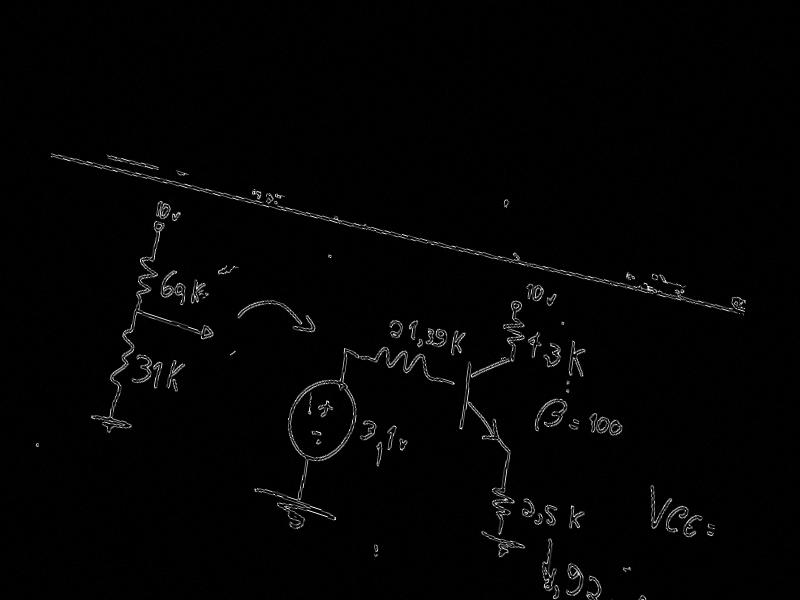 10v
69K
31K
21,39K
3,1v
10v
4,3K
β = 100
2,5K
VCE=